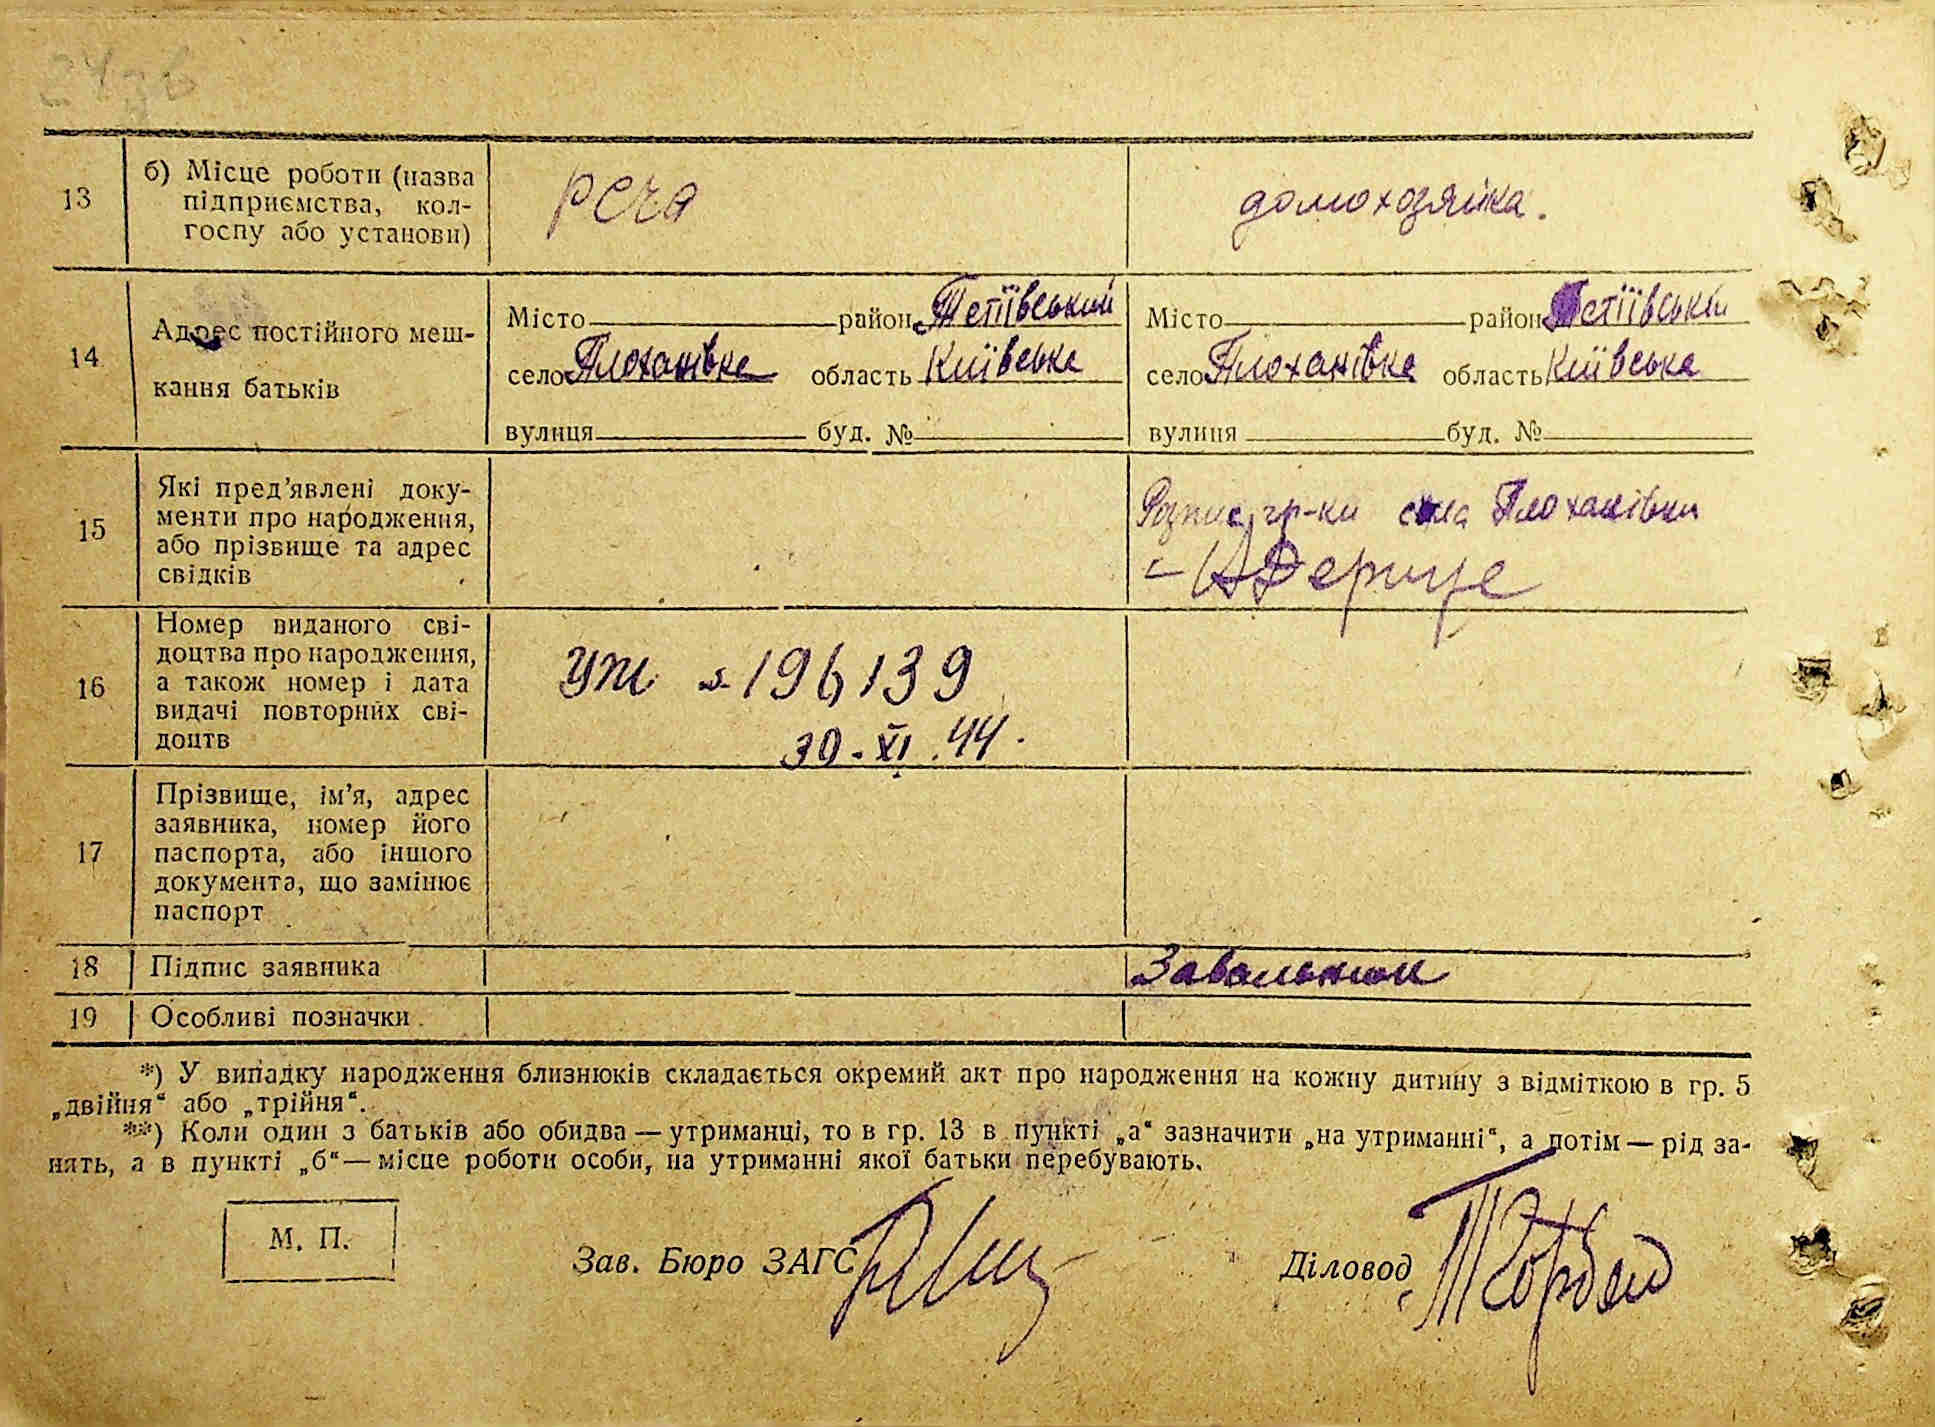 13
б) Місце роботи (назва
підприємства, кол-
госпу або установи)
РСЧА
домохозяйка.
14
Адрес постійного меш-
кання батьків
Місто район Тетіївський
село Плоханівка область Київська
вулиця буд. №
Місто район Тетіївській
село Плоханівка область Київська
вулиця буд. №
15
Які пред'явлені доку-
менти про народження,
або прізвище та адрес
свідків
гр-ки села Плоханівки
16
Номер виданого сві-
доцтва про народження,
а також номер і дата
видачі повторних сві-
доцтв
УЖ 196139
30-XI.44.
17
Прізвище, ім'я, адрес
заявника, номер його
паспорта, або іншого
документа, що замінює
паспорт
18
Підпис заявника
Завальнюк
19
Особливі позначки
*) У випадку народження близнюків складається окремий акт про народження на кожну дитину з відміткою в гр. 5
„двійня“ або „трійня“.
**) Коли один з батьків або обидва — утриманці, то в гр. 13 в пункті „а“ зазначити „на утриманні“, а потім — рід за-
нять, а в пункті „б“ — місце роботи особи, на утриманні якої батьки перебувають.
М. П.
Зав. Бюро ЗАГС
Діловод